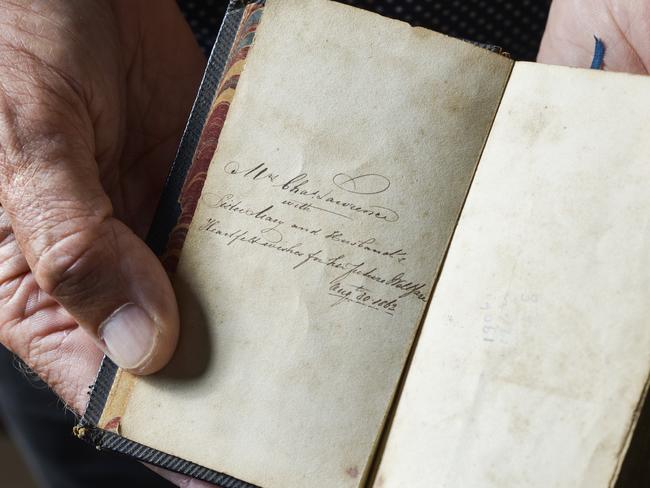 Mrs Chas. Lawrence
with
Sister Mary and Husband's
Heartfelt wishes for her future Welfare
Aug 30th 1863